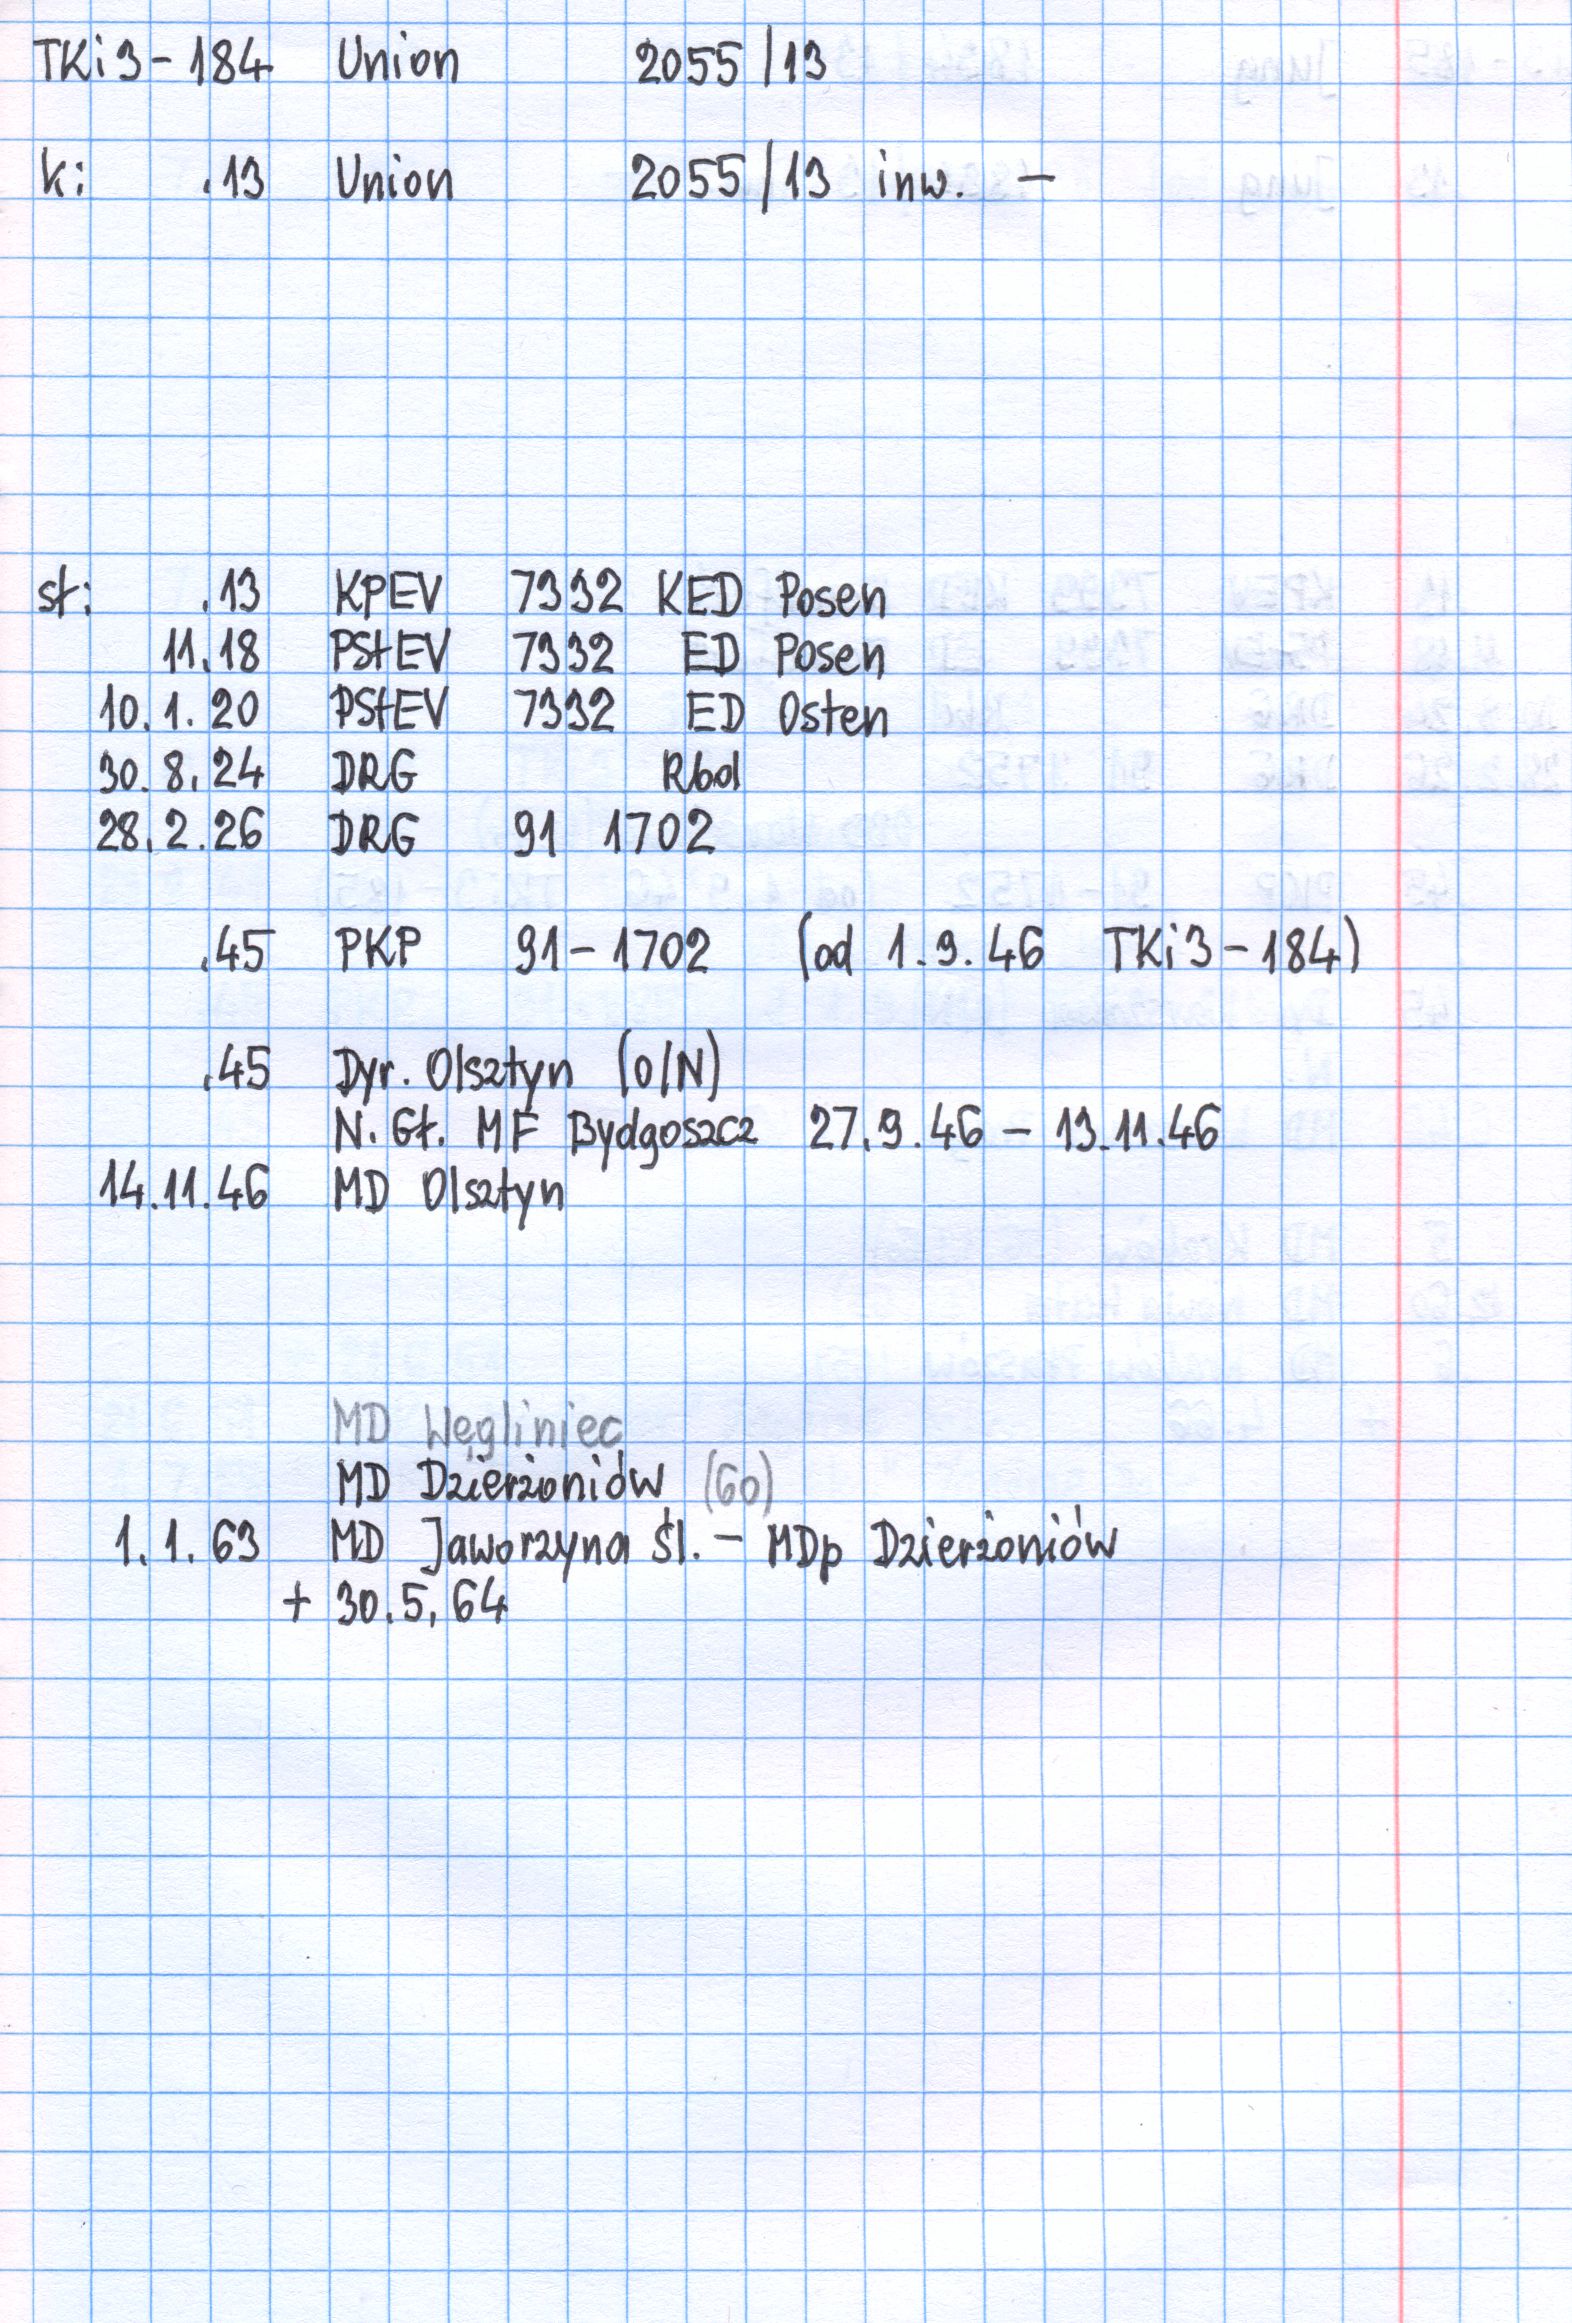 TKi3-184 Union 2055/13
k: .13 Union 2055/13 inw. –
st: .13 KPEV 7332 KED Posen
11.18 PStEV 7332 ED Posen
10.1.20 PStEV 7332 ED Osten
30.8.24 DRG Rbd
28.2.26 DRG 91 1702
.45 PKP 91-1702 (od 1.9.46 TKi3-184)
.45 Dyr. Olsztyn (O/N)
N. Gł. MF Bydgoszcz 27.9.46 – 13.11.46
14.11.46 MD Olsztyn
MD Węgliniec
MD Dzierżoniów (60)
1.1.63 MD Jaworzyna Śl. – MDp Dzierżoniów
+ 30.5.64